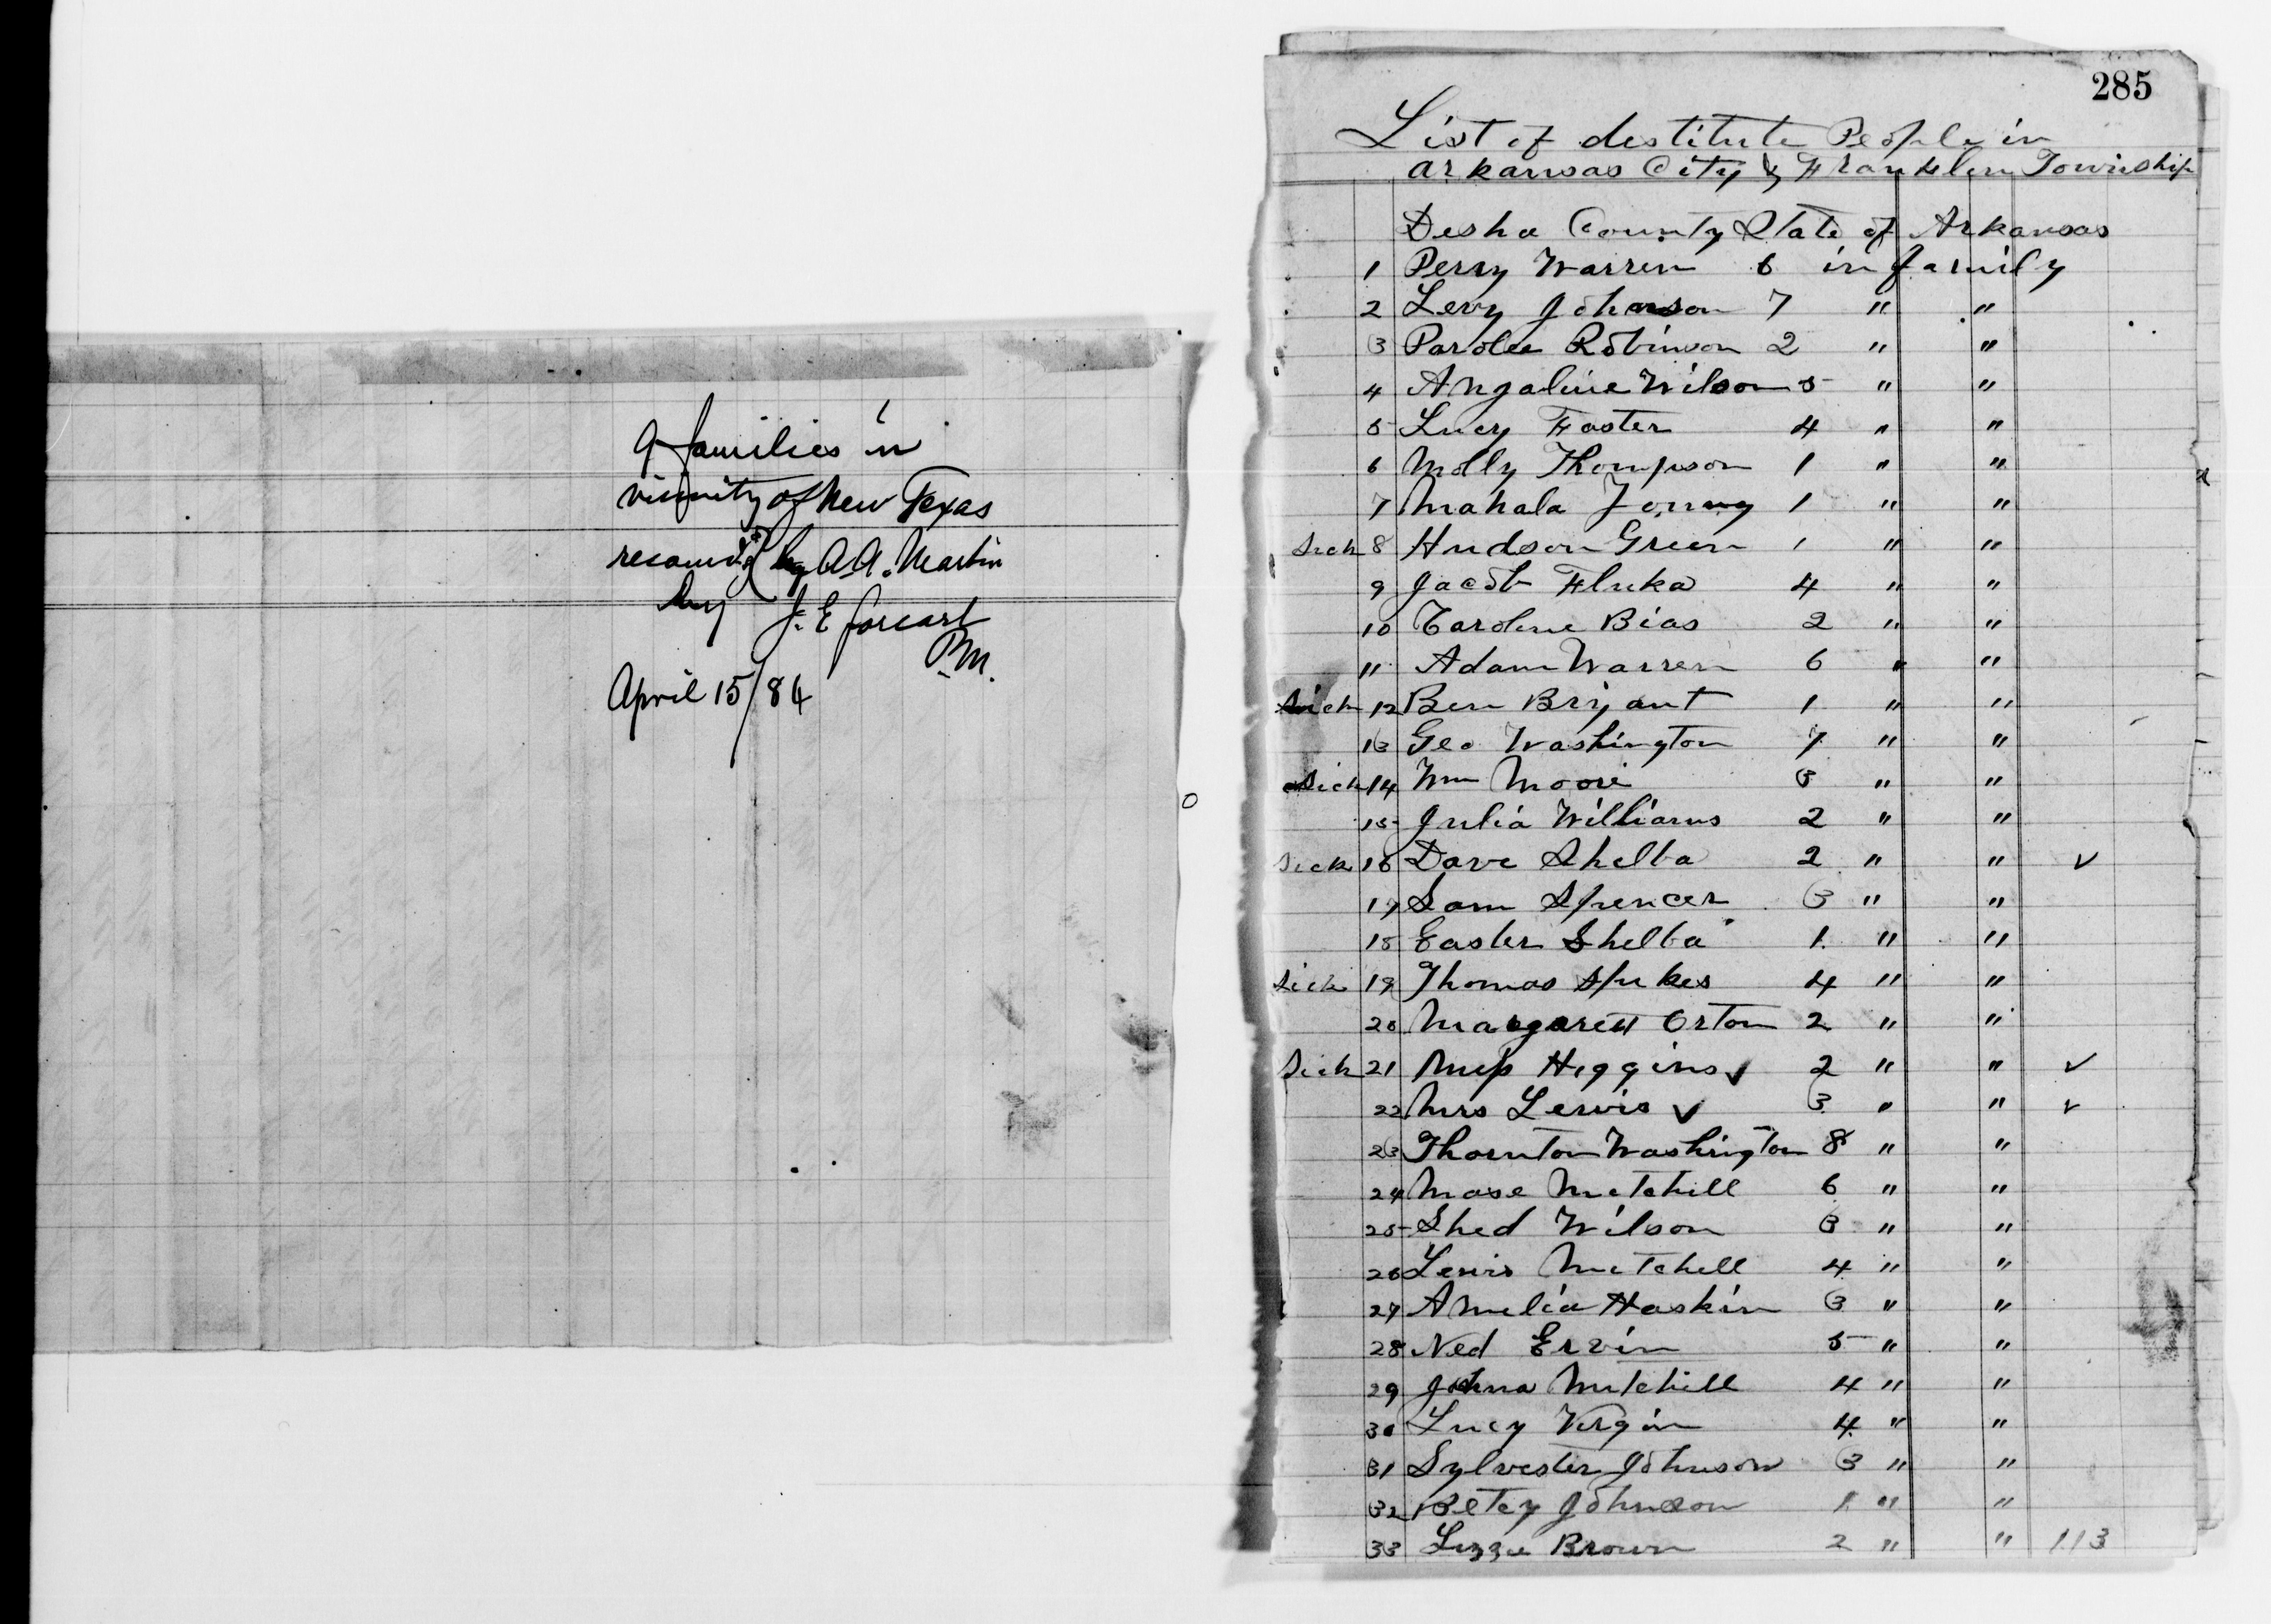 9 families in
vicinity of New Texas
recomd'd by A.A. Martin
by J. E. Forcart
P.M.
April 15/84
285
List of destitute People in
Arkansas City & Franklin Township
Desha County State of Arkansas
1 Perry Warren 6 in family
2 Levy Johnson 7 " "
3 Parolee Robinson 2 " "
4 Angaline Wilson 5 " "
5 Lucy Foster 4 " "
6 Molly Thompson 1 " "
7 Mahala Young 1 " "
Sick 8 Hudson Green 1 " "
9 Jacob Fluka 4 " "
10 Caroline Bias 2 " "
11 Adam Warren 6 " "
Sick 12 Ben Bryant 1 " "
13 Geo Washington 7 " "
Sick 14 Wm Moore 3 " "
15 Julia Williams 2 " "
Sick 16 Dave Shelba 2 " " ✓
17 Sam Spencer 3 " "
18 Easter Shelba 1 " "
Sick 19 Thomas Spukes 4 " "
20 Margarett Orton 2 " "
Sick 21 Miss Higgins ✓ 2 " " ✓
22 Mrs Lewis ✓ 3 " " ✓
23 Thornton Washington 8 " "
24 Mose Mitchill 6 " "
25 Shed Wilson 3 " "
26 Lewis Mitchell 4 " "
27 Amelia Haskin 3 " "
28 Ned Ervin 5 " "
29 Mitchill 4 " "
30 Lucy Virgin 4 " "
31 Sylvester Johnson 3 " "
32 Betey Johnson 1 " "
33 Lizzie Brown 2 " " 113